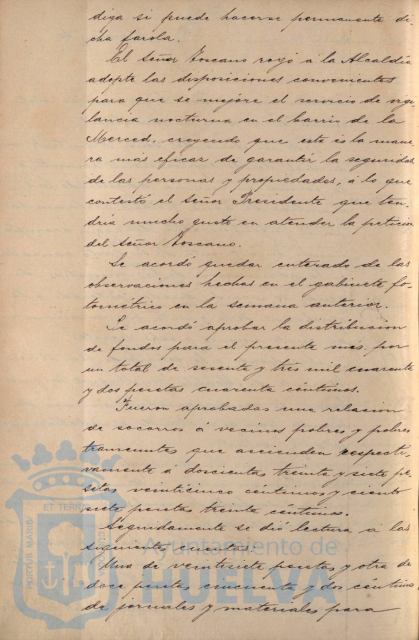 diga si puede hacerse permanente di-
cha farola.
El Señor Toscano rogó á la Alcaldía
adopte las disposiciones convenientes
para que se mejore el servicio de vigi-
lancia nocturna en el barrio de la
Merced, creyendo que este es la mane-
ra mas eficaz de garantir la seguridad
de las personas y propiedades, á lo que
contestó el Señor Presidente que ten-
dría mucho gusto en atender la peticion
del Señor Toscano.
Se acordó quedar enterado de las
observaciones hechas en el gabinete fo-
tometrico en la semana anterior.
Se acordó aprobar la distribucion
de fondos para el presente mes por
un total de sesenta y tres mil cuarenta
y dos pesetas cuarenta céntimos.
Fueron aprobadas una relacion
de socorros á vecinos pobres y pobres
transeuntes que ascienden respecti-
vamente á doscientas treinta y siete pe-
setas veinticinco céntimos y ciento
siete pesetas treinta céntimos.
Seguidamente se dió lectura á las
siguientes cuentas:
Una de veintisiete pesetas y otra de
doce pesetas cincuenta y dos céntimos
de jornales y materiales para
Ayuntamiento de
HUELVA
PORTUS MARIS
ET TERRÆ